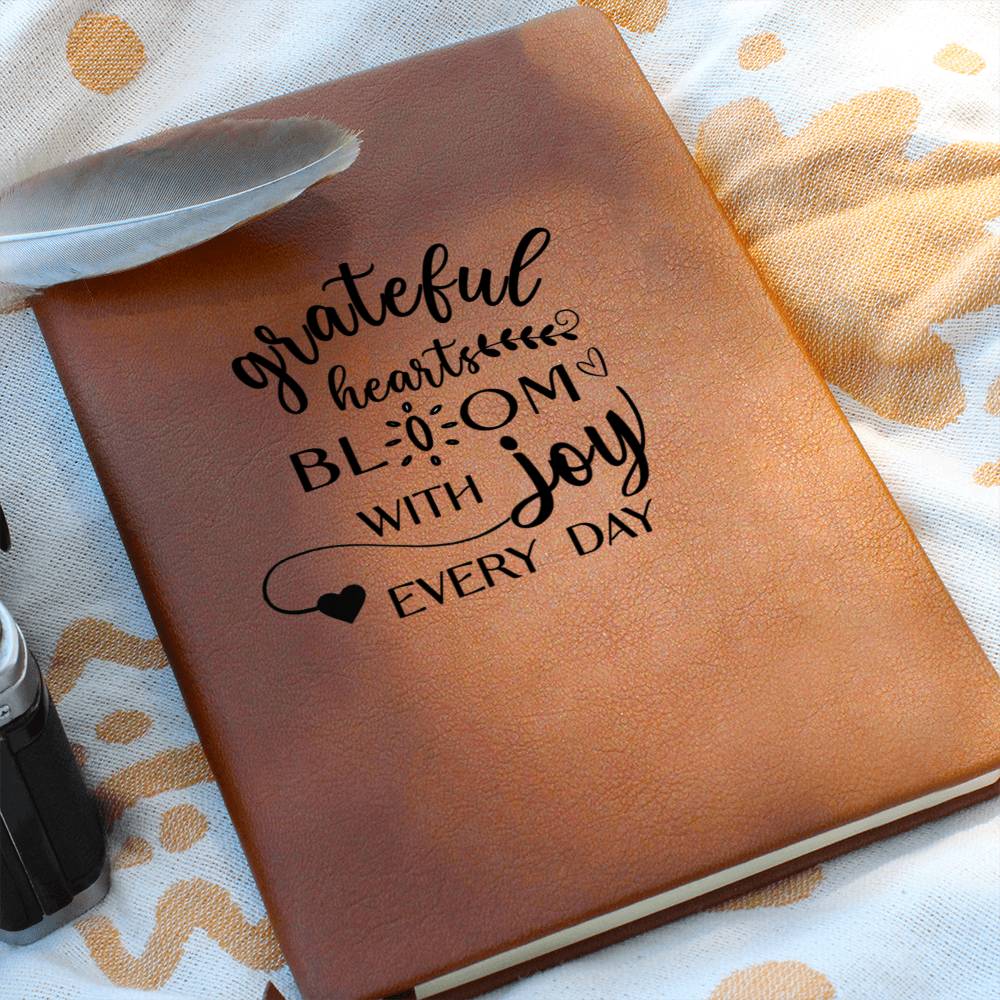 grateful
hearts
BLOOM
WITH joy
EVERY DAY